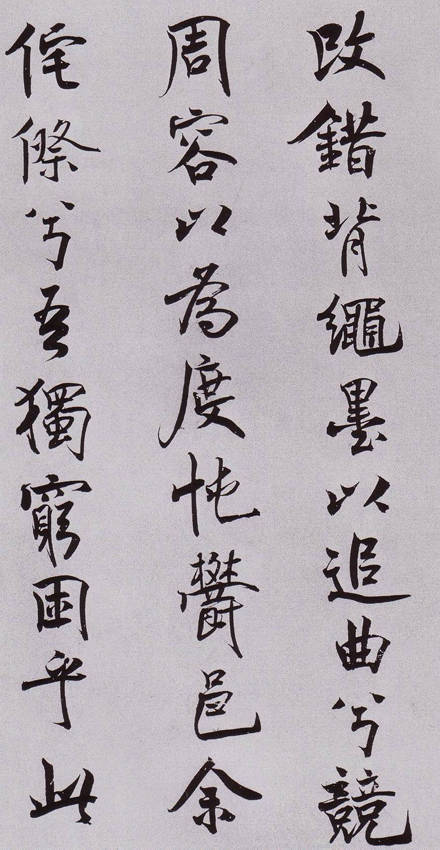 改錯背繩墨以追曲兮競
周容以為度忳鬱邑余
侘傺兮吾獨窮困乎此